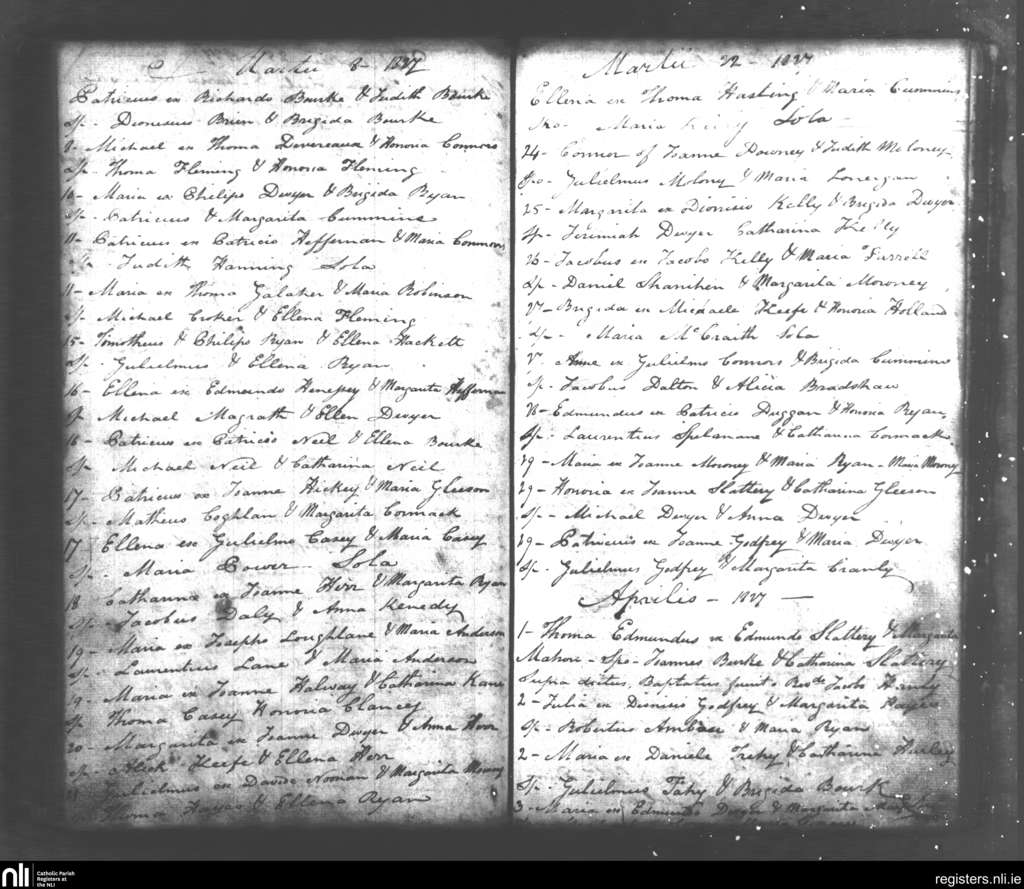 Martii 8 - 1827
Patricius ex Richardo Bourke & Judith Bourke
Sp - Dionisius Brien & Brigida Bourke
8 - Michael ex Thoma Devereaux & Honoria Connors
Sp - Thoma Fleming & Honoria Fleming
10 - Maria ex Philipo Dwyer & Brigida Ryan
Sp - Patricius & Margarita Cummins
11 - Patricius ex Patricio Heffernan & Maria Connors
Judith Hanning Sola
11 - Maria ex Thoma Galaher & Maria Robinson
Sp - Michael Croker & Ellena Fleming
15 - Timotheus & Philipo Ryan & Ellena Hackett
Sp - Gulielmus & Ellena Ryan
16 - Ellena ex Edmundo & Margarita Heffernan
Sp Michael Magrath & Ellen Dwyer
16 - Patricius ex Patricio Neil & Ellena Bourke
Sp - Michael Neil & Catharina Neil
17 - Patricius ex Joanne Hickey & Maria Gleeson
Sp - Matheus Coghlan & Margarita Cormack
17 Ellena ex Gulielmo Casey & Maria Casey
Sp - Maria Power - Sola
18 Catharina ex Joanne Herr & Margarita Ryan
Sp - Jacobus Daly & Anna Kenedy
19 - Maria ex Josepho Loughlane & Maria Anderson
Sp - Laurentius Lane & Maria Anderson
19 - Maria ex Joanne Halway & Catharina Kane
Sp Thoma Casey Honoria Clancey
20 - Margarita ex Joanne Dwyer & Anna Herr
Sp - Keefe & Ellena Herr
Gulielmus ex Davide Noonan & Margarita
Thoma Hayes & Ellena Ryan
Martii 22 - 1827
Ellena ex Thoma Hasting & Maria Cummins
Spo - Maria Sola
24 - Connor of Joanne Downey & Judith Moloney
Spo - Gulielmus Molony & Maria Lonergan
25 - Margarita ex Dionisio Kelly & Brigida Dwyer
Sp - Jeremiah Dwyer Catharina Kelly
26 - Jacobus ex Jacobo Kelly & Maria Farrell
Sp - Daniel & Margarita Moroney
27 - Brigida ex Michaele Keefe & Honoria Holland
Sp - Maria McCraith Sola
Anne ex Gulielmo Connors & Brigida Cummins
Sp - Jacobus Dalton & Alicia Bradshaw
28 - Edmundus ex Patricio Duggan & Honoria Ryan
Sp - Laurentius Spelanane & Catharina Cormack
29 - Maria ex Joanne Moroney & Maria Ryan - Maria Moroney
29 - Honoria ex Joanne Slattery & Catharina Gleeson
Sp - Michael Dwyer & Anna Dwyer
29 - Patricius ex Joanne Godfrey & Maria Dwyer
Sp - Gulielmus Godfrey & Margarita Cranly
Aprilis - 1827 -
1 - Thoma Edmundus ex Edmundo Slattery & Margarita
Mahon - Spo - Joannes Burke & Catharina Slattery
supra dictus, Baptatus fuit a Revdo Jacobo Hanly
2 - Julia ex Dionius Godfrey & Margarita
Sp - Robertus & Maria Ryan
2 - Maria ex Daniele & Catharina Hurley
Sp - Gulielmus Fahy & Brigida Bourk
3 - Maria ex Edmundo Dwyer & Margarita
nli
Catholic Parish
Registers at
the NLI
registers.nli.ie